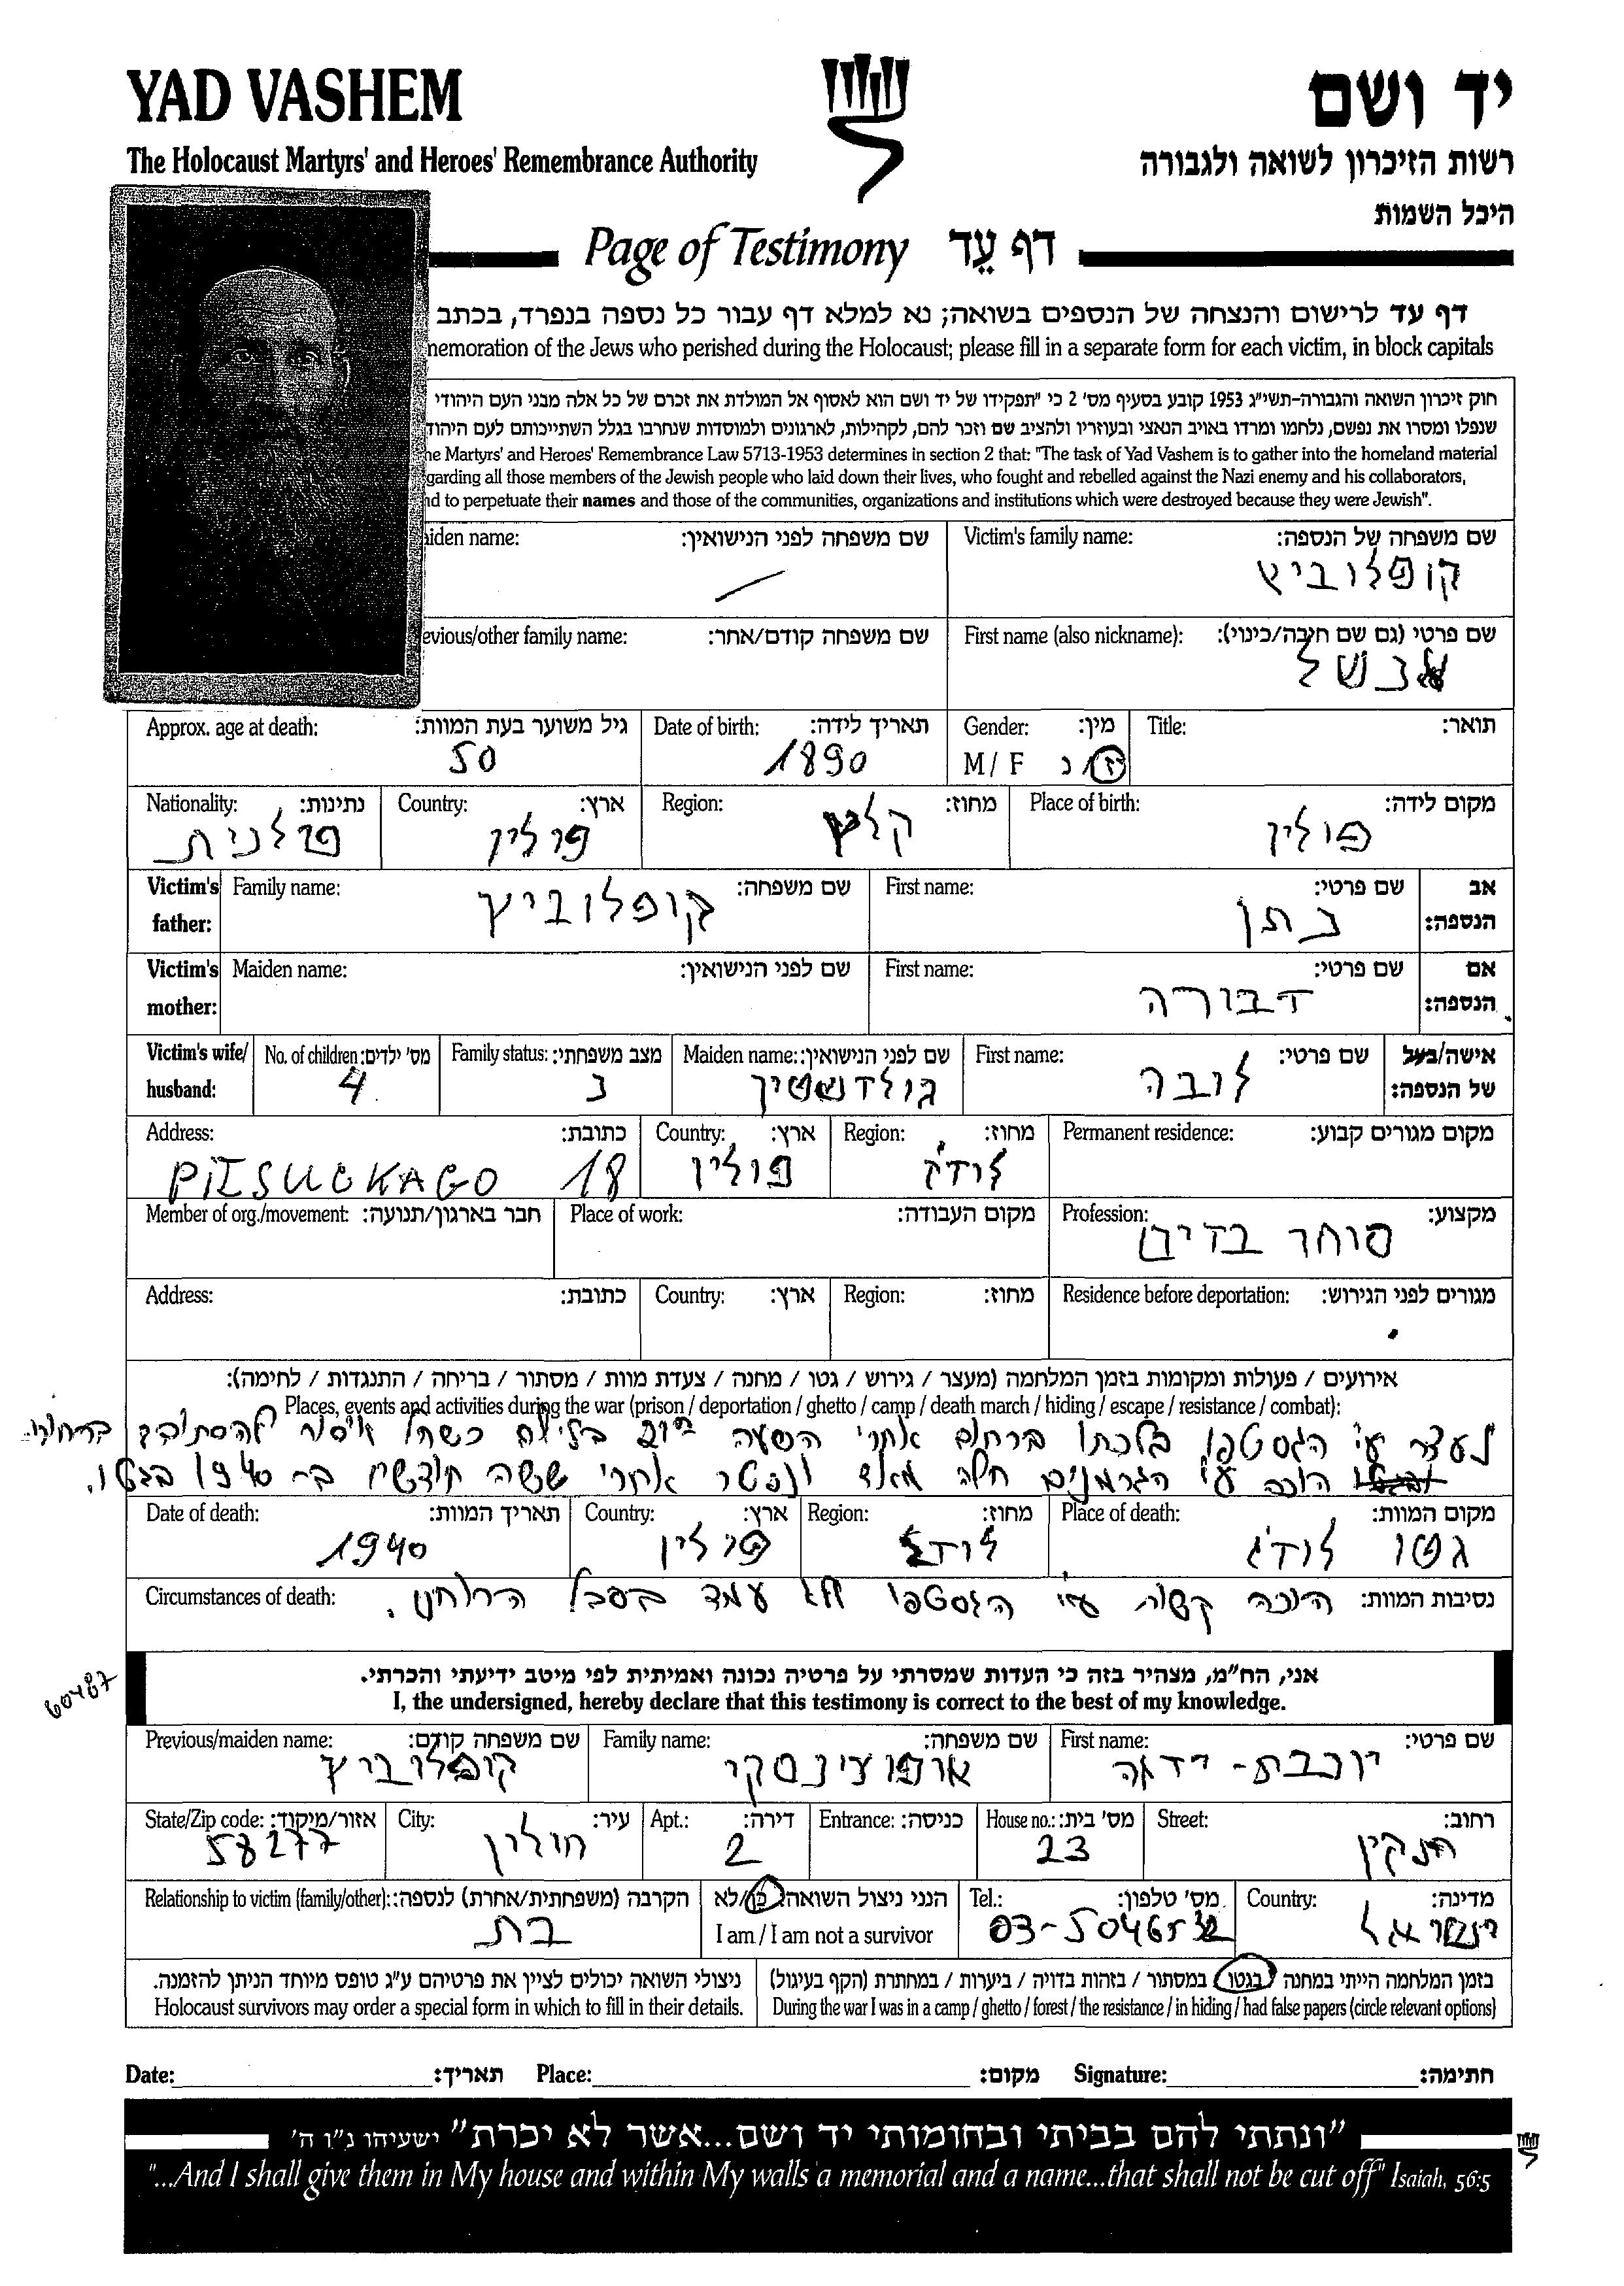 YAD VASHEM יד ושם
The Holocaust Martyrs' and Heroes' Remembrance Authority רשות הזיכרון לשואה ולגבורה
היכל השמות
Page of Testimony דף עֵד
דף עד לרישום והנצחה של הנספים בשואה; נא למלא דף עבור כל נספה בנפרד, בכתב
nemoration of the Jews who perished during the Holocaust; please fill in a separate form for each victim, in block capitals
חוק זיכרון השואה והגבורה-תשי"ג 1953 קובע בסעיף מס' 2 כי "תפקידו של יד ושם הוא לאסוף אל המולדת את זכרם של כל אלה מבני העם היהודי
שנפלו ומסרו את נפשם, נלחמו ומרדו באויב הנאצי ובעוזריו ולהציב שם וזכר להם, לקהילות, לארגונים ולמוסדות שנחרבו בגלל השתייכותם לעם היהוד
he Martyrs' and Heroes' Remembrance Law 5713-1953 determines in section 2 that: "The task of Yad Vashem is to gather into the homeland material
garding all those members of the Jewish people who laid down their lives, who fought and rebelled against the Nazi enemy and his collaborators,
nd to perpetuate their names and those of the communities, organizations and institutions which were destroyed because they were Jewish".
iden name: שם משפחה לפני הנישואין: Victim's family name: שם משפחה של הנספה:
קופלוביץ
evious/other family name: שם משפחה קודם/אחר: First name (also nickname): שם פרטי (גם שם חיבה/כינוי):
אנשל
Approx. age at death: גיל משוער בעת המוות: Date of birth: תאריך לידה: Gender: מין: Title: תואר:
50 1890 M / F ז/נ
Nationality: נתינות: Country: ארץ: Region: מחוז: Place of birth: מקום לידה:
פולנית פולין קלץ פולין
Victim's father: Family name: שם משפחה: First name: שם פרטי: אב הנספה:
קופלוביץ נתן
Victim's mother: Maiden name: שם לפני הנישואין: First name: שם פרטי: אם הנספה:
דבורה
Victim's wife/ husband: No. of children: מס' ילדים: Family status: מצב משפחתי: Maiden name: שם לפני הנישואין: First name: שם פרטי: אישה/בעל של הנספה:
4 נ גולדשטיין לובה
Address: כתובת: Country: ארץ: Region: מחוז: Permanent residence: מקום מגורים קבוע:
PiŁSUCKAGO 18 פולין לודג'
Member of org./movement: חבר בארגון/תנועה: Place of work: מקום העבודה: Profession: מקצוע:
סוחר בדים
Address: כתובת: Country: ארץ: Region: מחוז: Residence before deportation: מגורים לפני הגירוש:
אירועים / פעולות ומקומות בזמן המלחמה (מעצר / גירוש / גטו / מחנה / צעדת מוות / מסתור / בריחה / התנגדות / לחימה):
Places, events and activities during the war (prison / deportation / ghetto / camp / death march / hiding / escape / resistance / combat):
נעצר ע"י הגסטפו בלכתו ברחוב אחרי השעה בלילה כשהי איסור להסתובב
הוכה ע"י הגרמנים חלה מאד ונפטר אחרי ששה חודשים ב- 1940 בגטו.
Date of death: תאריך המוות: Country: ארץ: Region: מחוז: Place of death: מקום המוות:
1940 פולין לודג' גטו לודג'
Circumstances of death: נסיבות המוות: הוכה קשות ע"י הגסטפו לא עמד בסבל
60487
אני, הח"מ, מצהיר בזה כי העדות שמסרתי על פרטיה נכונה ואמיתית לפי מיטב ידיעתי והכרתי.
I, the undersigned, hereby declare that this testimony is correct to the best of my knowledge.
Previous/maiden name: שם משפחה קודם: Family name: שם משפחה: First name: שם פרטי:
קופלוביץ אופוצ'ינסקי יוכבת-
State/Zip code: אזור/מיקוד: City: עיר: Apt.: דירה: Entrance: כניסה: House no.: מס' בית: Street: רחוב:
58277 חולון 2 23 חנקין
Relationship to victim (family/other): הקרבה (משפחתית/אחרת) לנספה: הנני ניצול השואה: כן/לא Tel.: מס' טלפון: Country: מדינה:
בת I am / I am not a survivor ישראל
ניצולי השואה יכולים לציין את פרטיהם ע"ג טופס מיוחד הניתן להזמנה. בזמן המלחמה הייתי במחנה / בגטו / במסתור / בזהות בדויה / ביערות / במחתרת (הקף בעיגול)
Holocaust survivors may order a special form in which to fill in their details. During the war I was in a camp / ghetto / forest / the resistance / in hiding / had false papers (circle relevant options)
Date: תאריך: Place: מקום: Signature: חתימה:
"ונתתי להם בביתי ובחומותי יד ושם...אשר לא יכרת" ישעיהו נ"ו ה'
"...And I shall give them in My house and within My walls a memorial and a name...that shall not be cut off" Isaiah, 56:5